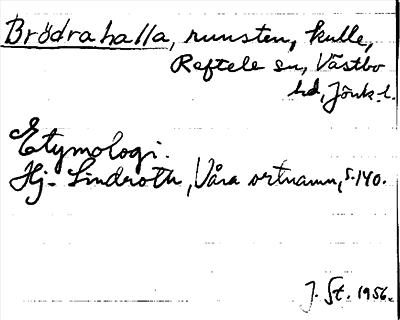 Brödrahalla, runsten, kulle,
Reftele sn, Västbo
hd, Jönk. l.
Etymologi.
Hj. Lindroth, Våra ortnamn, s. 140.
J. St. 1956.